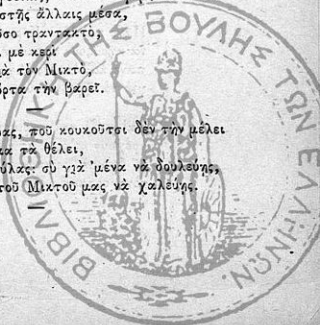 στῆς ἄλλαις μέσα,
σο τραντακτὸ,
μὲ κερὶ
τὸν Μικτὸ,
όρτα τὴν βαρεῖ.
ας, ποῦ κουκοῦτσι δὲν τὴν μέλει
κα τὰ θέλει,
ύλας: σὺ γιὰ ᾽μένα νὰ δουλεύῃς,
τοῦ Μικτοῦ μας νὰ χαλεύῃς.
ΒΙΒΛΙΟΘΗΚΗ ΤΗΣ ΒΟΥΛΗΣ ΤΩΝ ΕΛΛΗΝΩΝ.